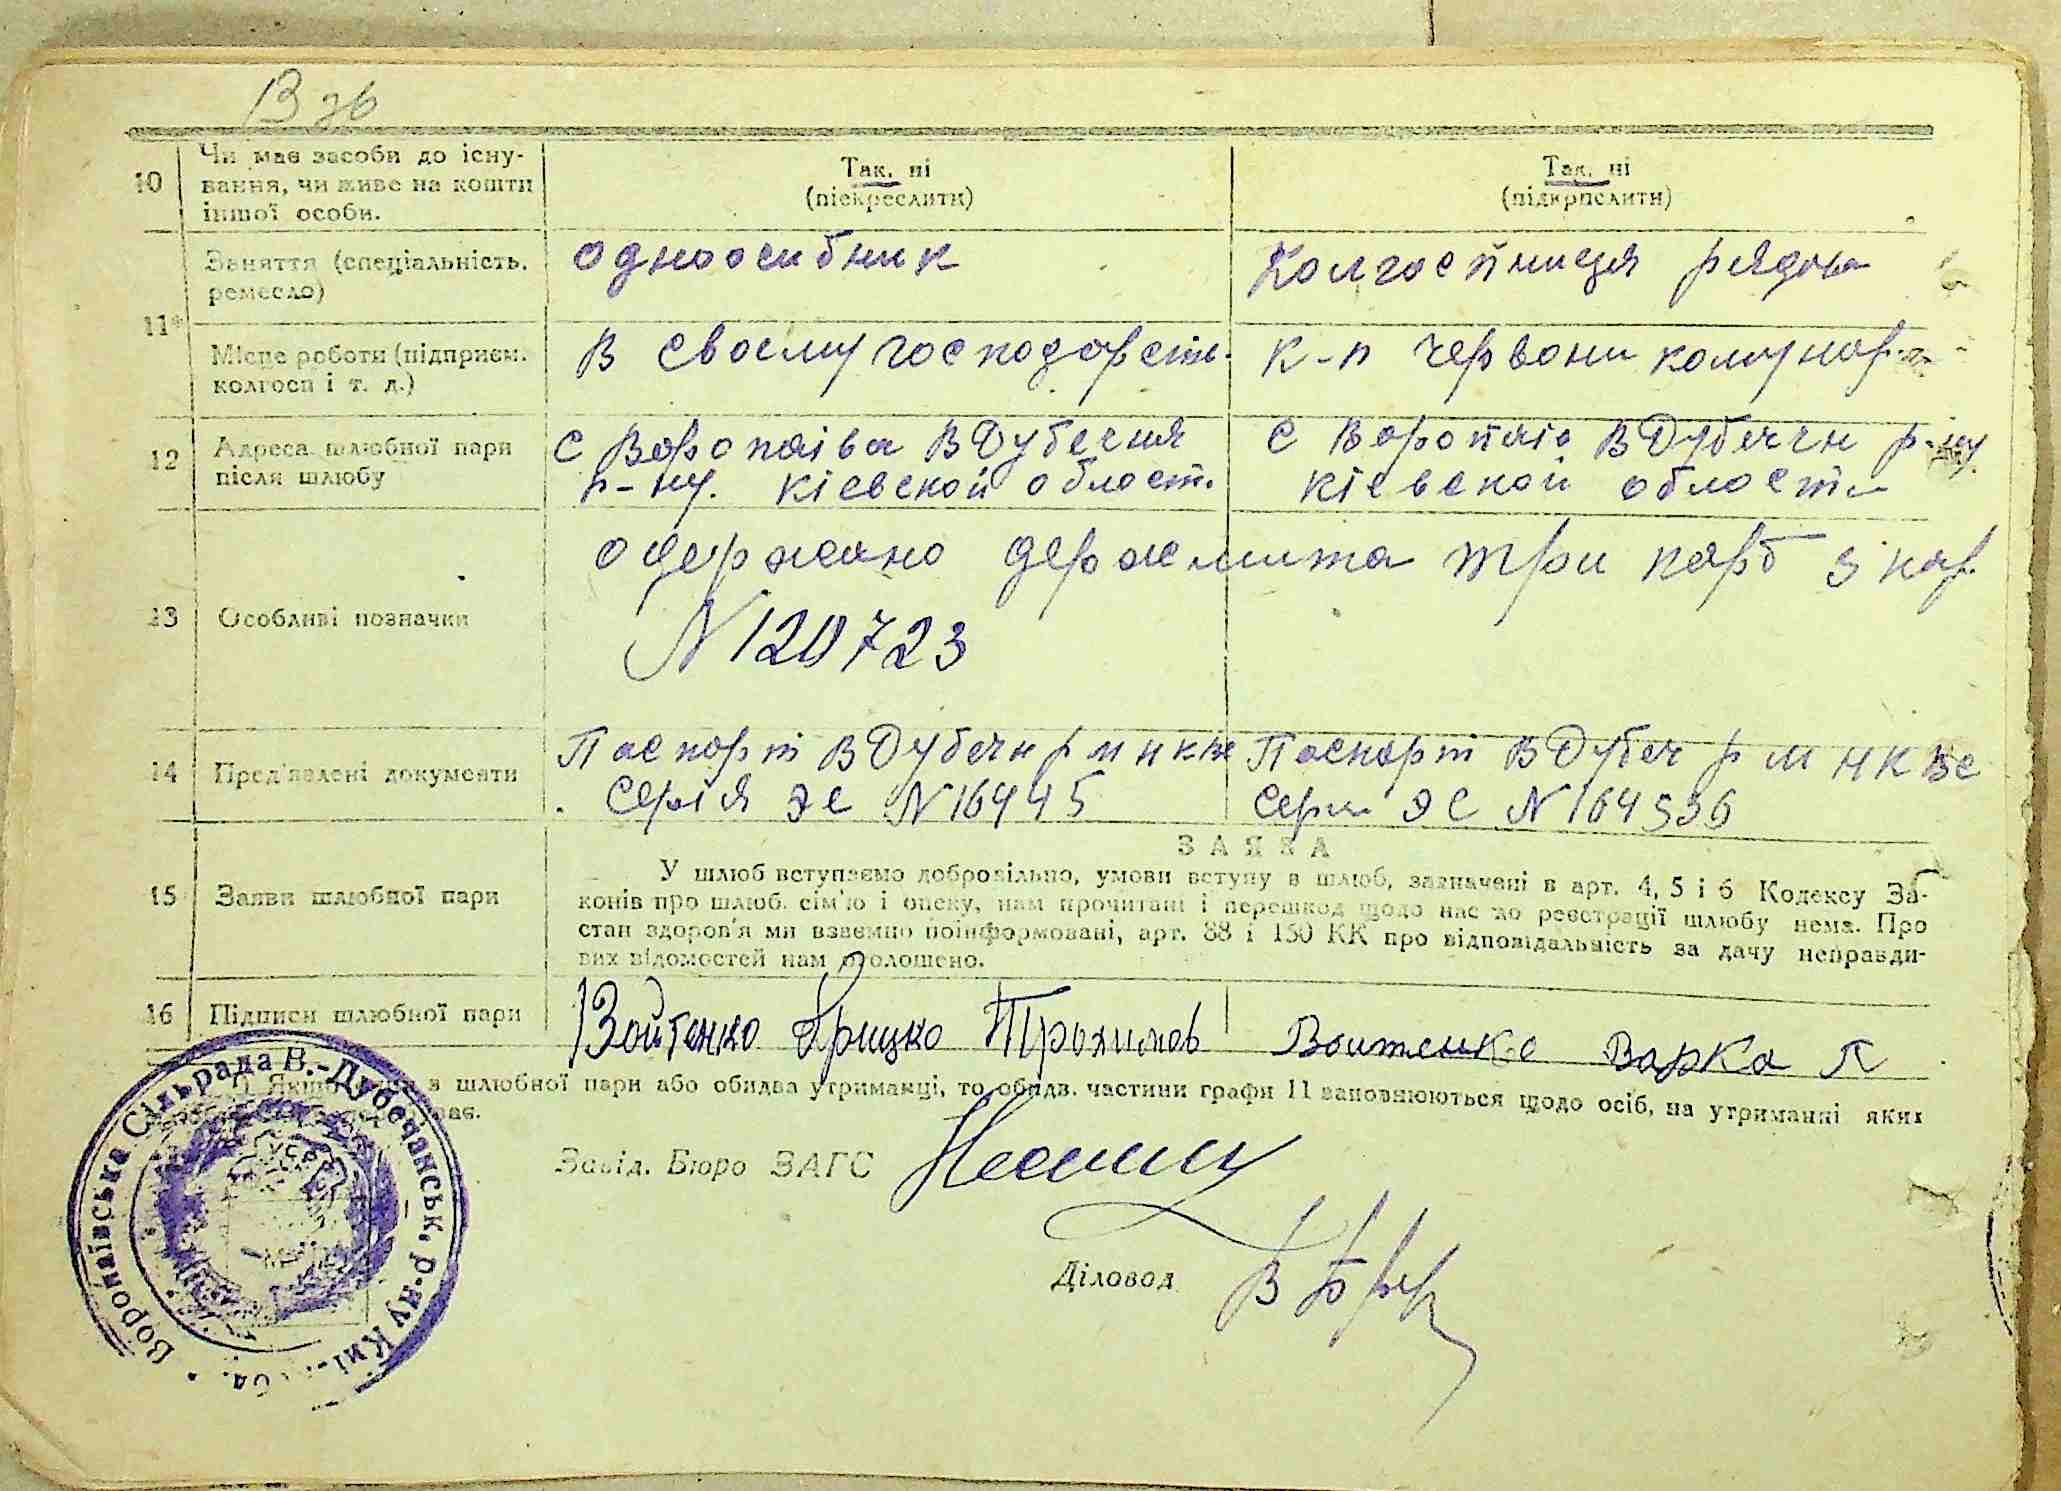 В зв
10 Чи має засоби до існу-
вання, чи живе на кошти
іншої особи.
Так, ні
(підкреслити)
Так, ні
(підкреслити)
11*
Заняття (спеціальність,
ремесло)
одноосибник
Колгоспниця рядова
Місце роботи (підприєм.
колгосп і т. д.)
В своєму господарств.
К-п червони комунар
12 Адреса шлюбної пари
після шлюбу
с Воропаіва ВДубечня
р-ну. кіевской област.
с Воропаів ВДубечн р-ну
кіевской области
13 Особливі позначки
одержано держмита три карб 3 кар.
N 120723
14 Пред'явлені документи
Паспорт ВДубечн р м н к
Серія ЭС N 16445
Паспорт ВДубеч р м н к
Сери ЭС N 164536
15 Заяви шлюбної пари
ЗАЯВА
У шлюб вступаємо добровільно, умови вступу в шлюб, зазначені в арт. 4, 5 і 6 Кодексу За-
конів про шлюб, сім'ю і опеку, нам прочитані і перешкод щодо нас до реєстрації шлюбу нема. Про
стан здоров'я ми взаємно поінформовані, арт. 88 і 130 КК про відповідальність за дачу неправди-
вих відомостей нам оголошено.
16 Підписи шлюбної пари
Войтенко Грицко Трохимов
Воитенко Варка П
Якщо в шлюбної пари або обидва утриманці, то обидв. частини графи 11 заповнюються щодо осіб, на утриманні яких
Завід. Бюро ЗАГС
Діловод
Воропаївська Сільрада В.-Дубечанськ. р-ну
УСРР